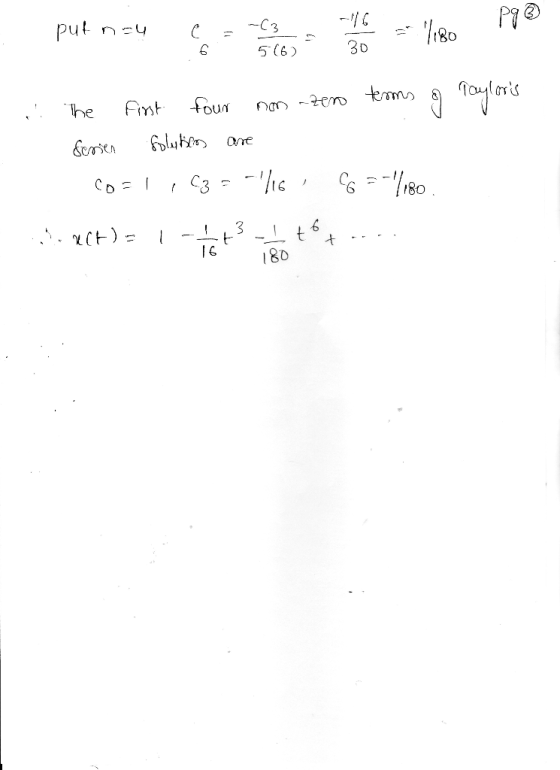 Pg ③
put n=4 C₆ = -C₃/5(6) = -1/6/30 = -1/180
∴ The first four non-zero terms of Taylor's
Series Solution are
C₀ = 1 , C₃ = -1/16 , C₆ = -1/180.
∴ x(t) = 1 - 1/16 t³ - 1/180 t⁶ + ....